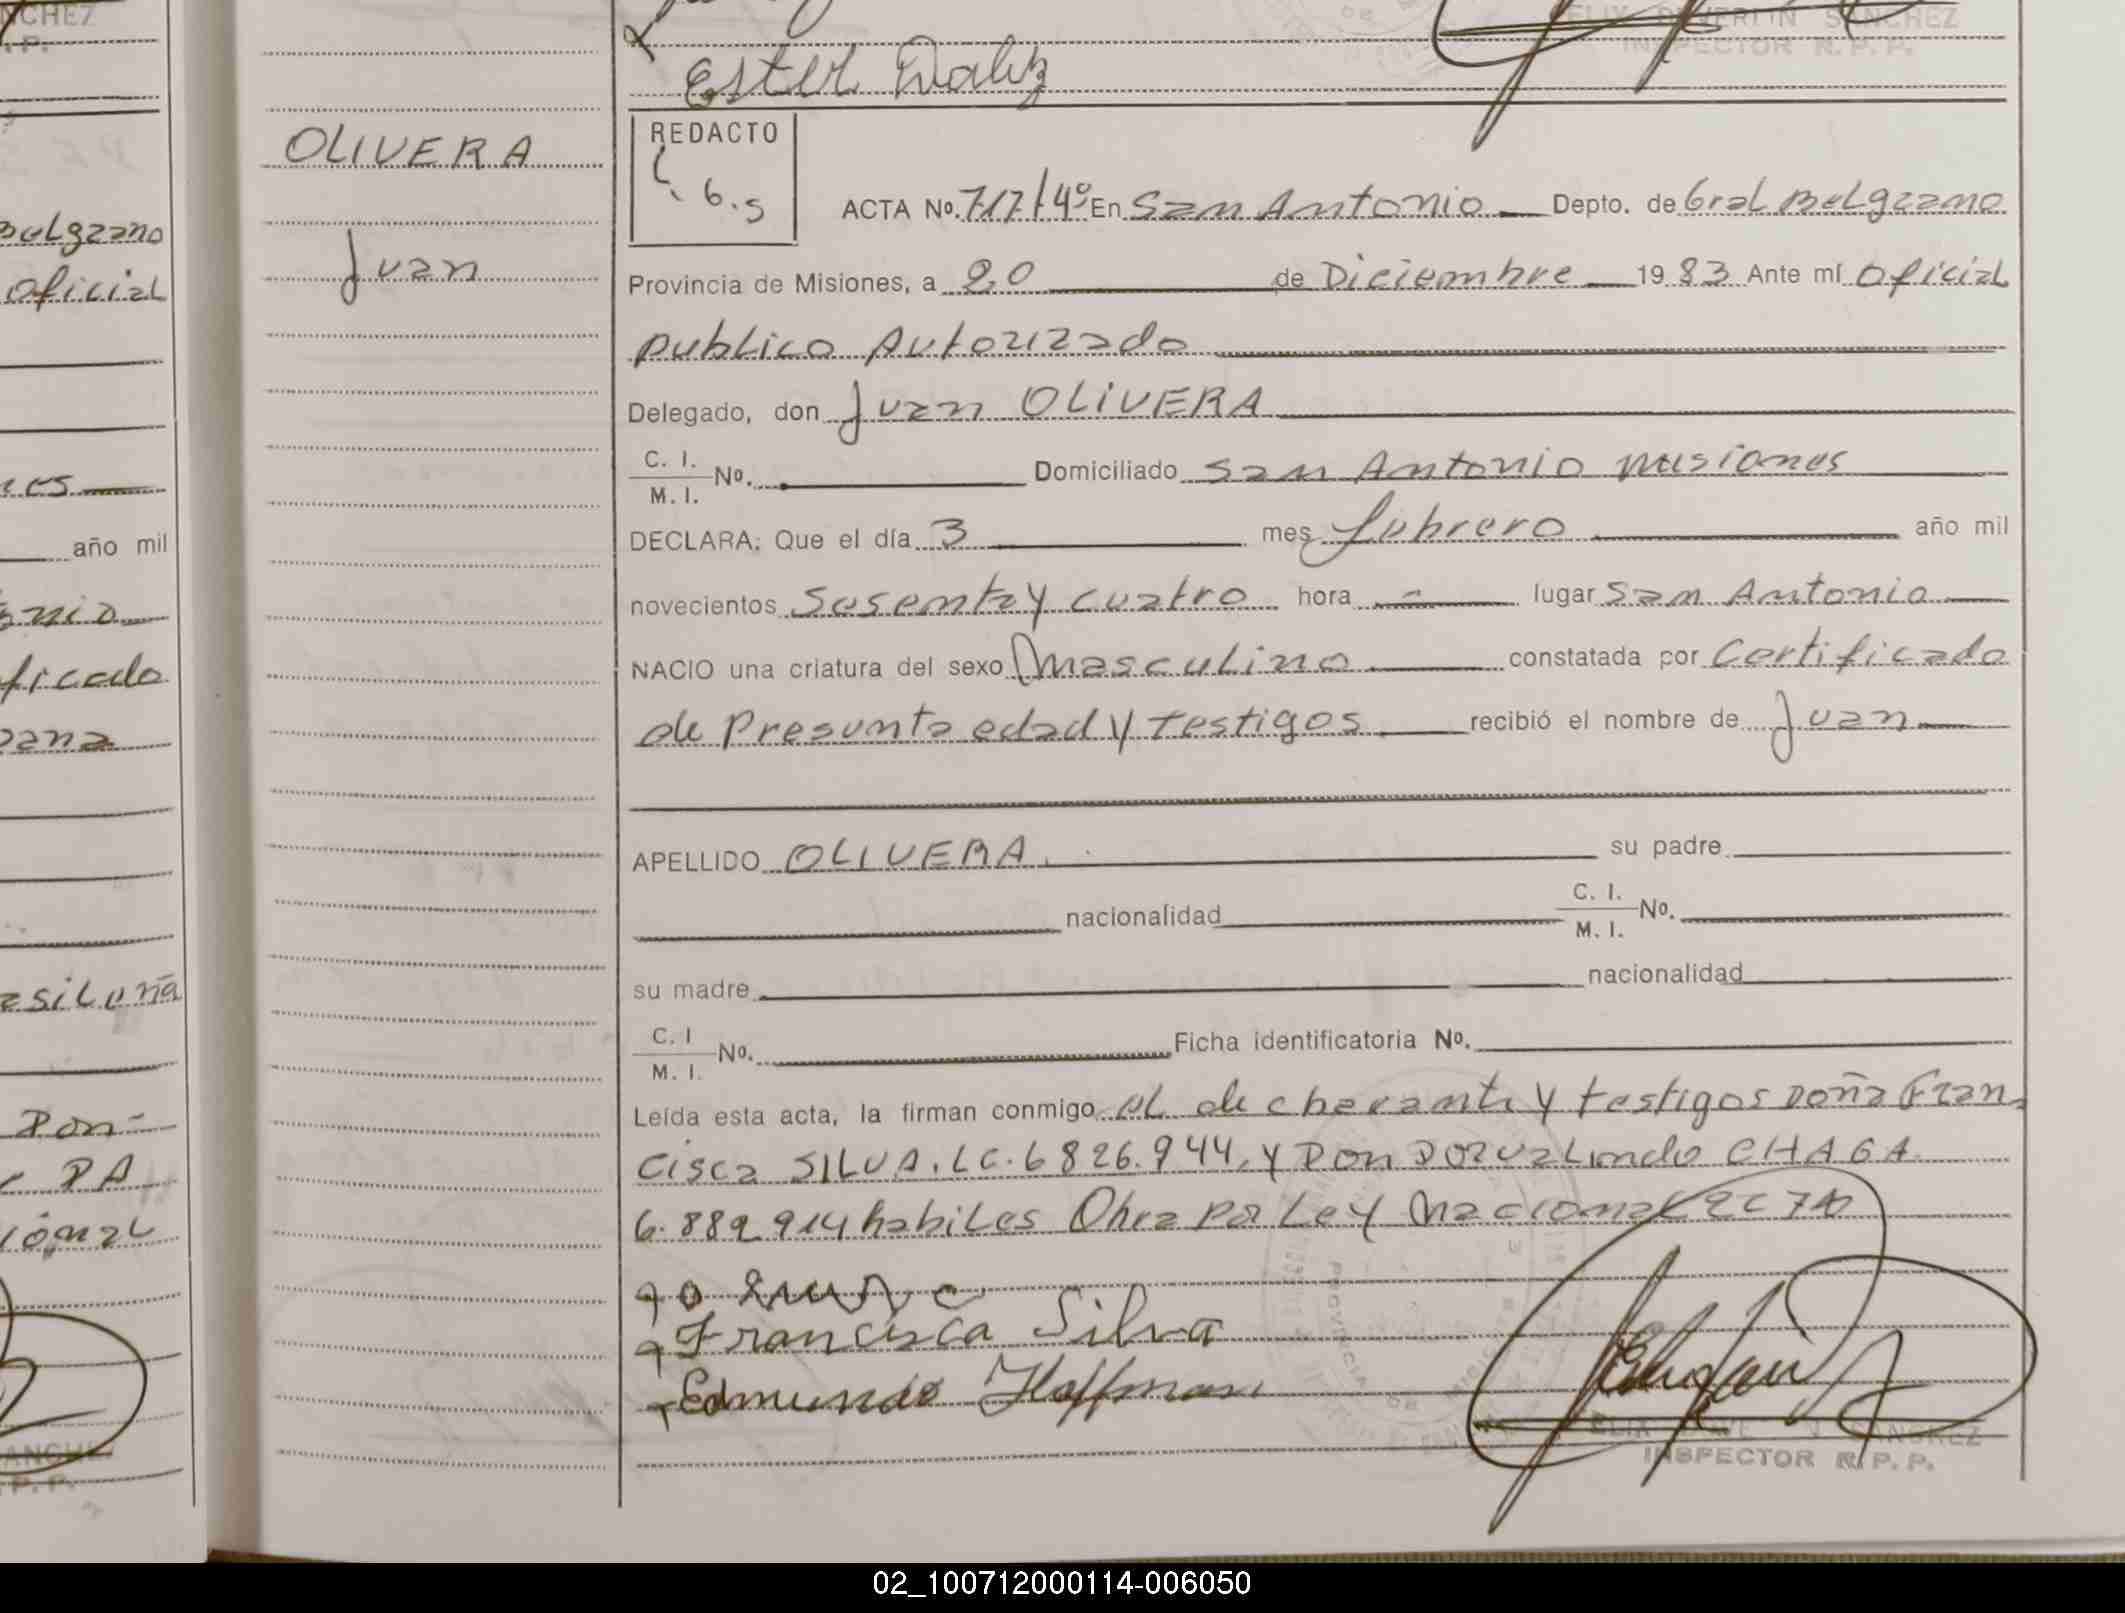 NCHEZ
. P.
Belgrano
oficial
año mil
ficado
asileña
Don-
DA
ional
ANCHE
. P. P.
OLIVERA
Juan
FELIX DUVERLIN SANCHEZ
INSPECTOR R. P. P.
Ester
REDACTO
ACTA Nº. 717/4º En San Antonio Depto. de Gral Belgrano
Provincia de Misiones, a 20 de Diciembre 1983 Ante mí oficial
publico Autorizado
Delegado, don Juan OLIVERA
C. I.
M. I. Nº. Domiciliado San Antonio Misiones
DECLARA: Que el día 3 mes febrero año mil
novecientos sesenta y cuatro hora - lugar San Antonio
NACIO una criatura del sexo Masculino constatada por Certificado
de Presunta edad y testigos recibió el nombre de Juan
APELLIDO OLIVERA. su padre
nacionalidad C. I.
M. I. Nº.
su madre nacionalidad
C. I
M. I. Nº. Ficha identificatoria Nº.
Leída esta acta, la firman conmigo el declarante y testigos Doña Fran
cisca SILVA. LC. 6826.944, y Don Dorvalindo CHAGA
6.889 914 habiles Obra por Ley Nacional
Francisca Silva
Edmundo Hoffman
FELIX DUVERLIN SANCHEZ
INSPECTOR R. P. P.
02_100712000114-006050